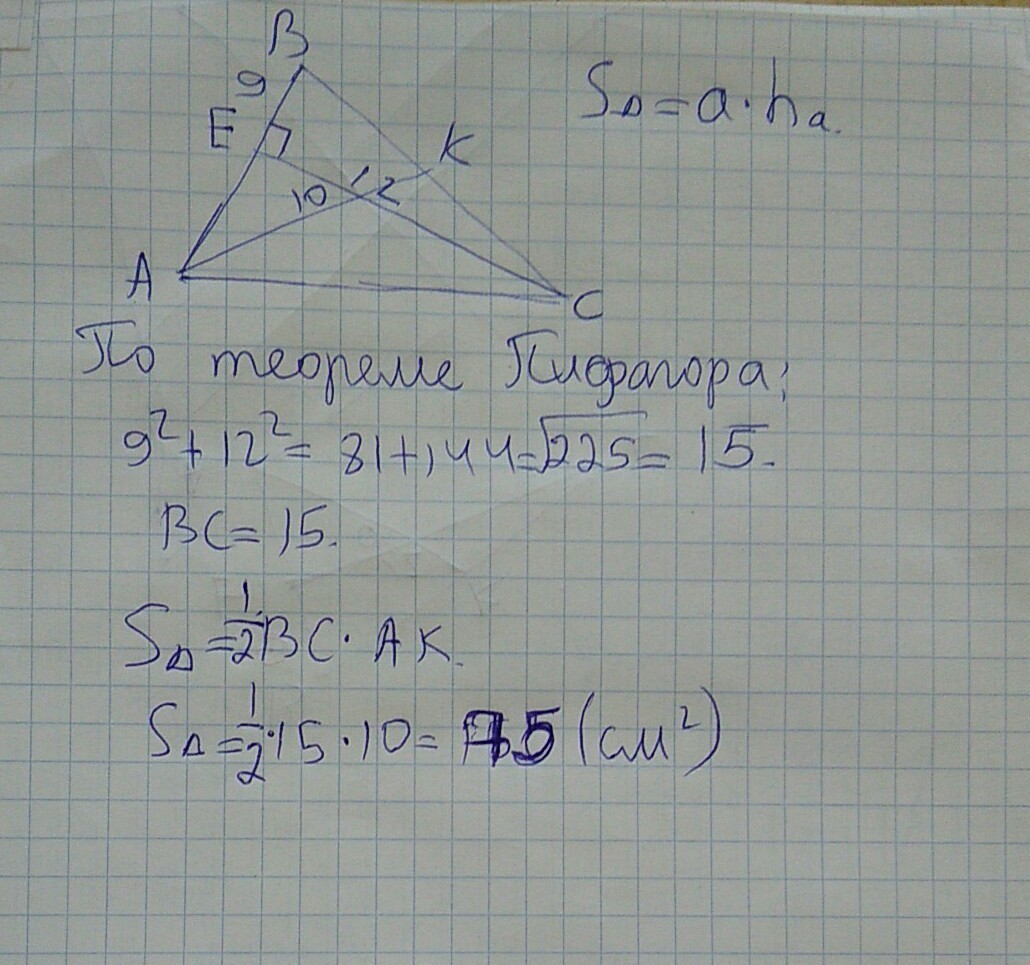 B
9
S△ = a · hₐ.
E
K
10 12
A
C
По теореме Пифагора;
9² + 12² = 81 + 144 = √225 = 15.
BC = 15.
S△ = 1/2 BC · AK.
S△ = 1/2 · 15 · 10 = 75 (см²)